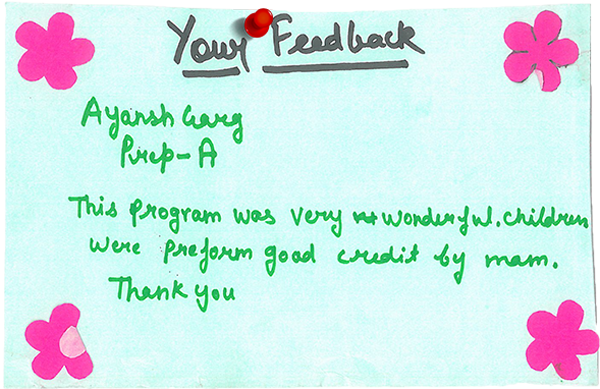 Your Feedback
Ayansh Garg
Prep-A
This program was very wonderful. children
were preform good credit by mam.
Thank you